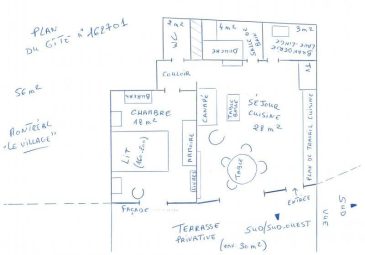 PLAN
DU GÎTE n° 162701
56 m²
MONTRÉAL
"LE VILLAGE"
2 m²
WC
DOUCHE
4 m²
SALLE DE BAIN
3 m²
BUANDERIE
LAVE-LINGE
COULOIR
BUREAU
CHAMBRE
18 m²
LIT
ARMOIRE
CANAPÉ
TABLE
BASSE
SÉJOUR
CUISINE
28 m²
TV
PLAN DE TRAVAIL CUISINE
TABLE
FAÇADE
ENTRÉE
TERRASSE
PRIVATIVE
SUD/SUD.OUEST
(env. 30 m²)
VUE
SUD